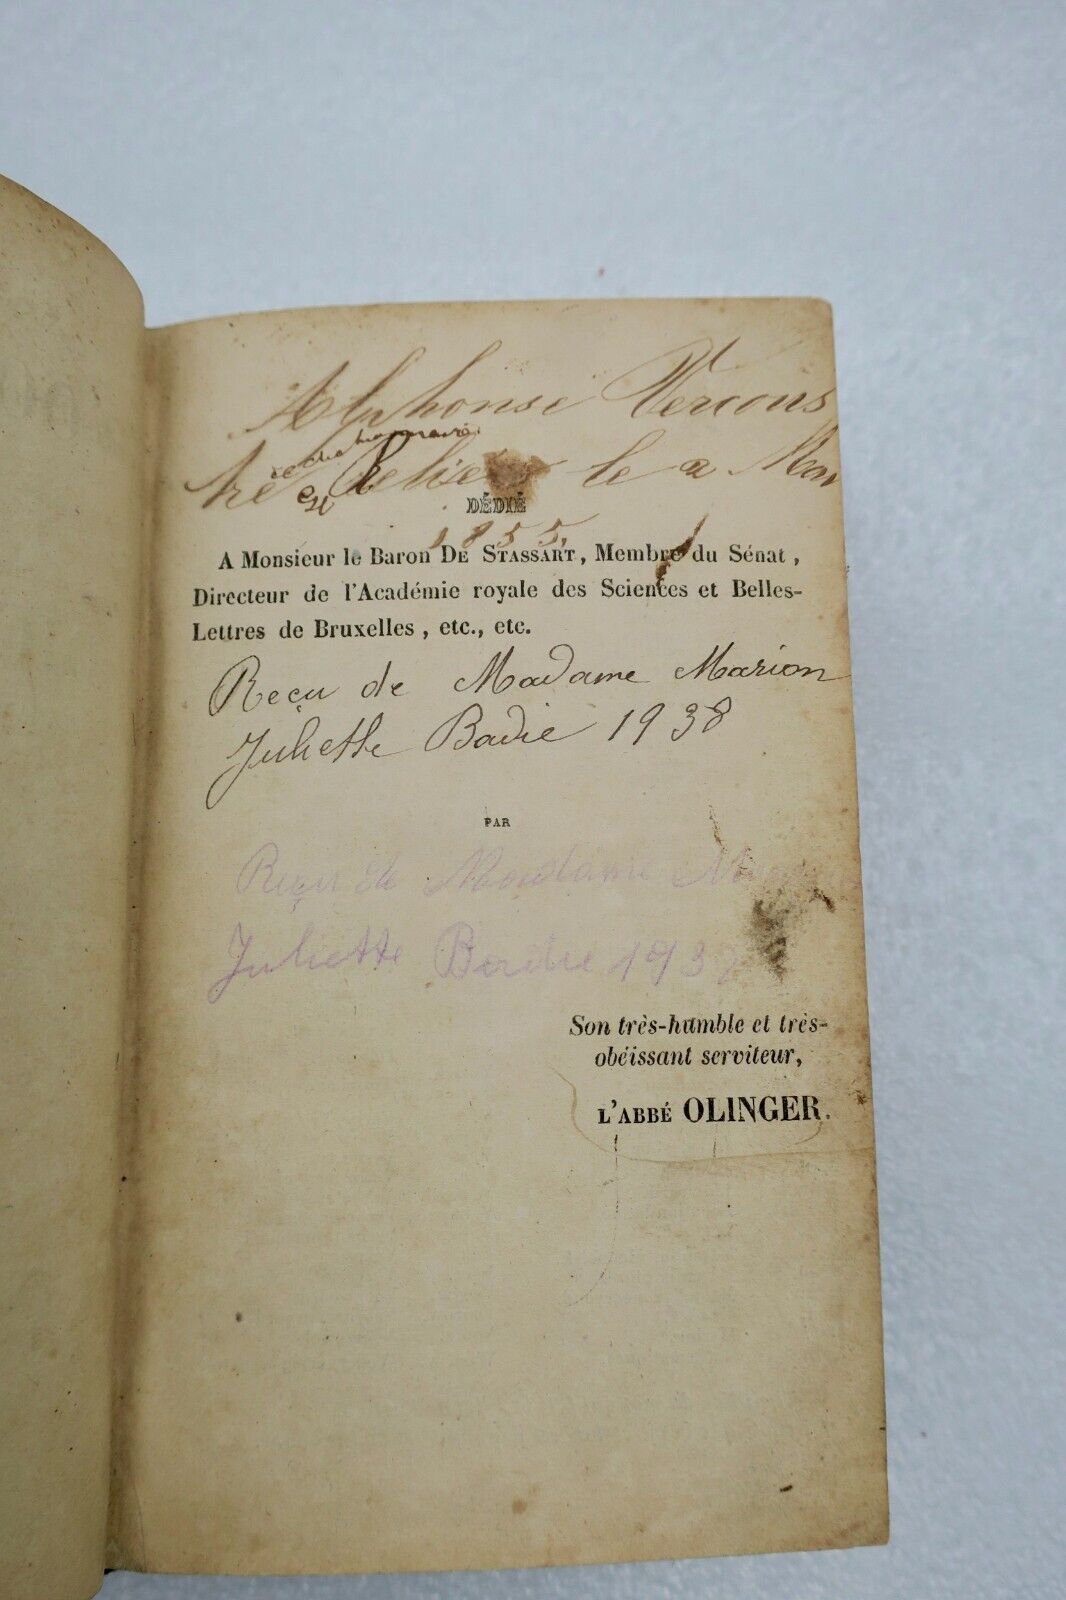 Alphonse Vercous
tre Relieur le 2 Mars
ce dictionnaire
est
DÉDIÉ
1855.
A Monsieur le Baron DE STASSART, Membre du Sénat,
Directeur de l'Académie royale des Sciences et Belles-
Lettres de Bruxelles, etc., etc.
Reçu de Madame Marion
Juliette Badie 1938
PAR
Reçu de Madame
Juliette 193
Son très-humble et très-
obéissant serviteur,
L'ABBÉ OLINGER.